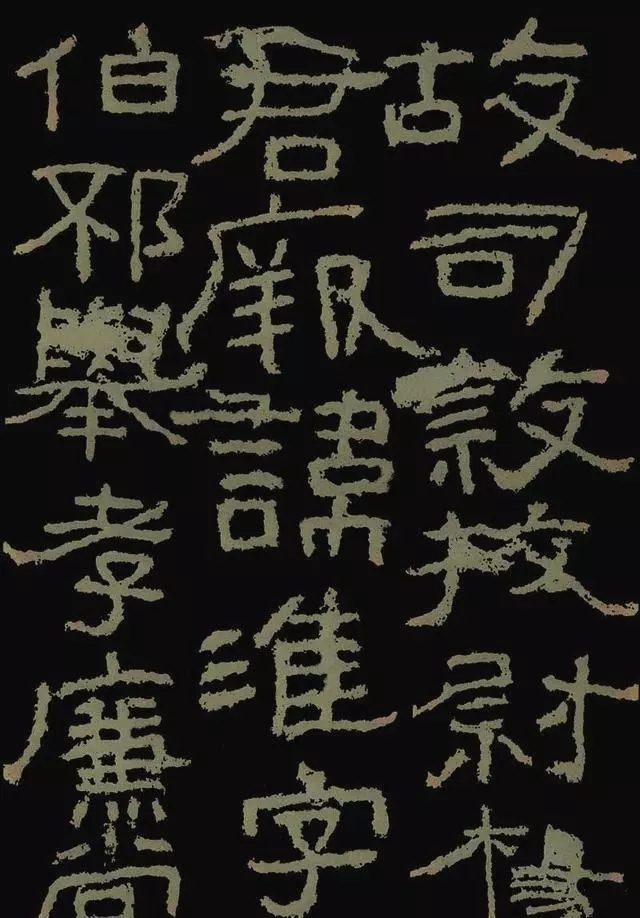 故司隸校尉楊
君厥諱淮字
伯邳舉孝廉尚